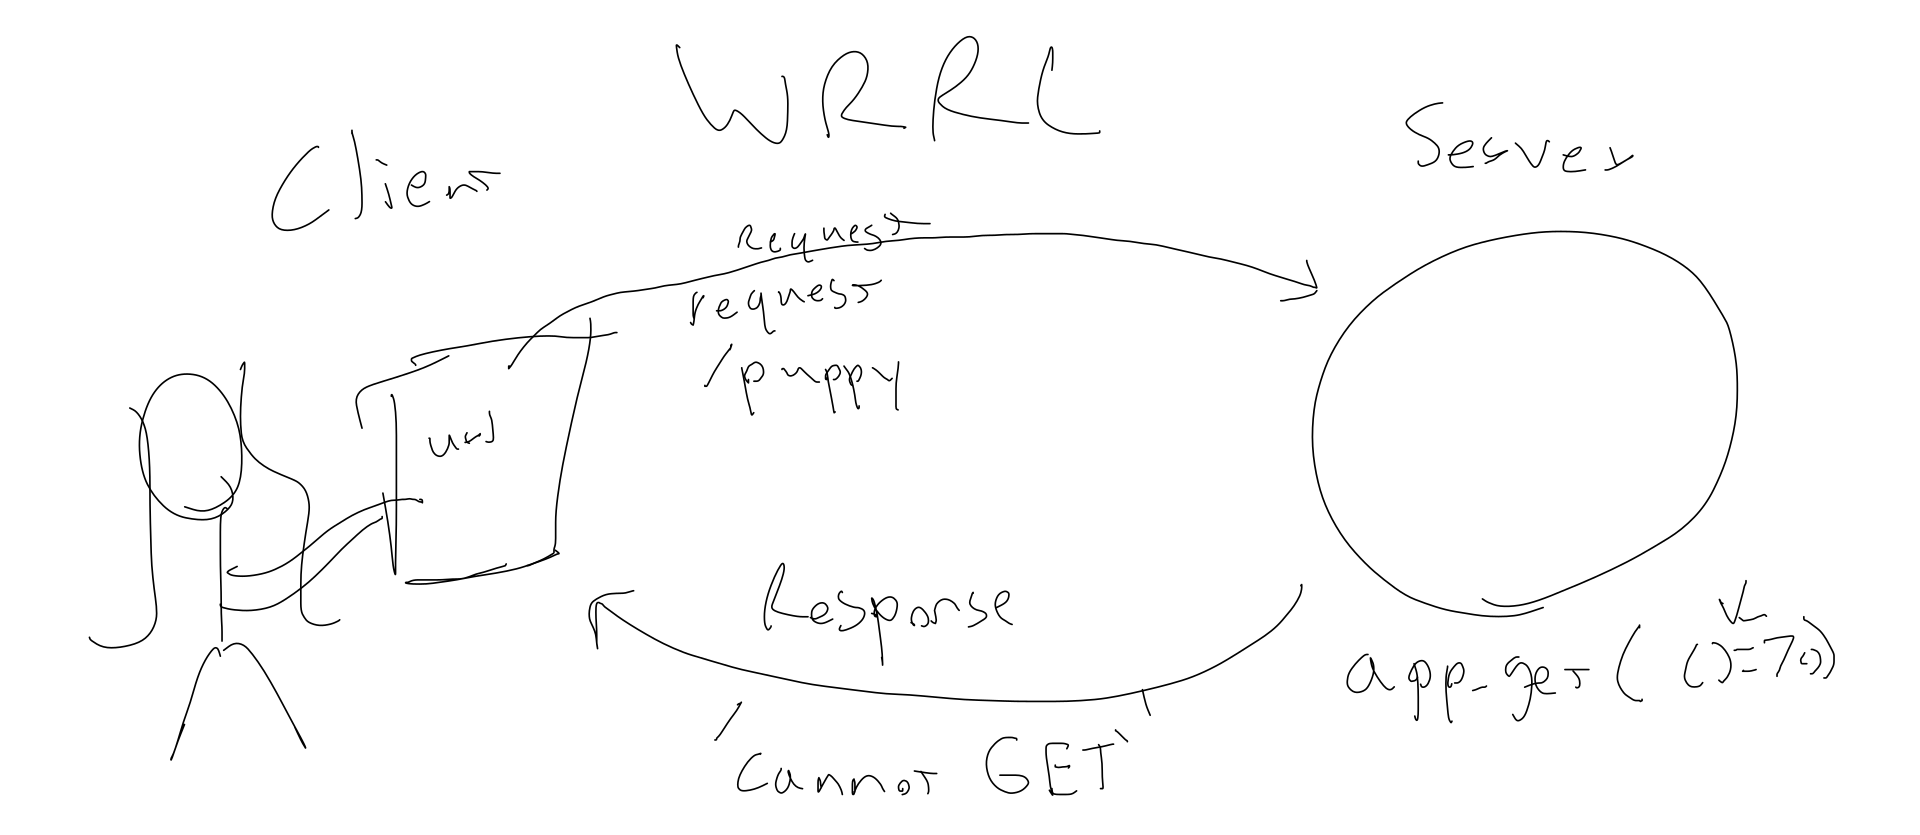 WRRC
Client
Server
Request
request
/puppy
url
Response
app.get( ()=>{})
'Cannot GET'